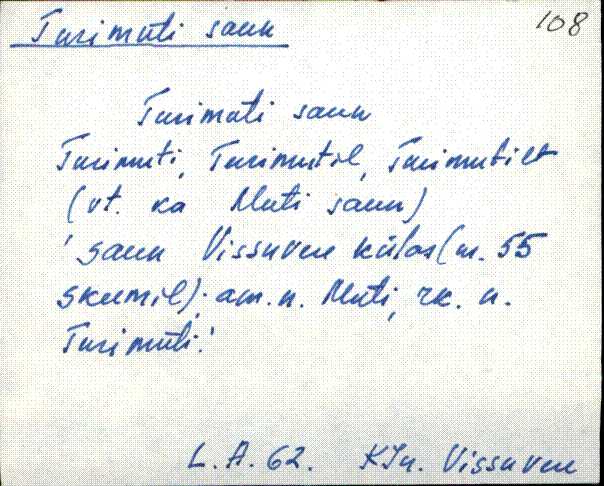 Turimuti saun
108
Turimuti saun
Turimuti, Turimutil, Turimutilt
(vt. ka Muti saun)
'saun Vissuvere külas (m. 55
skeemil); am. n. Muti, rk. n.
Turimuti.'
L. A. 62. KJn. Vissuvere